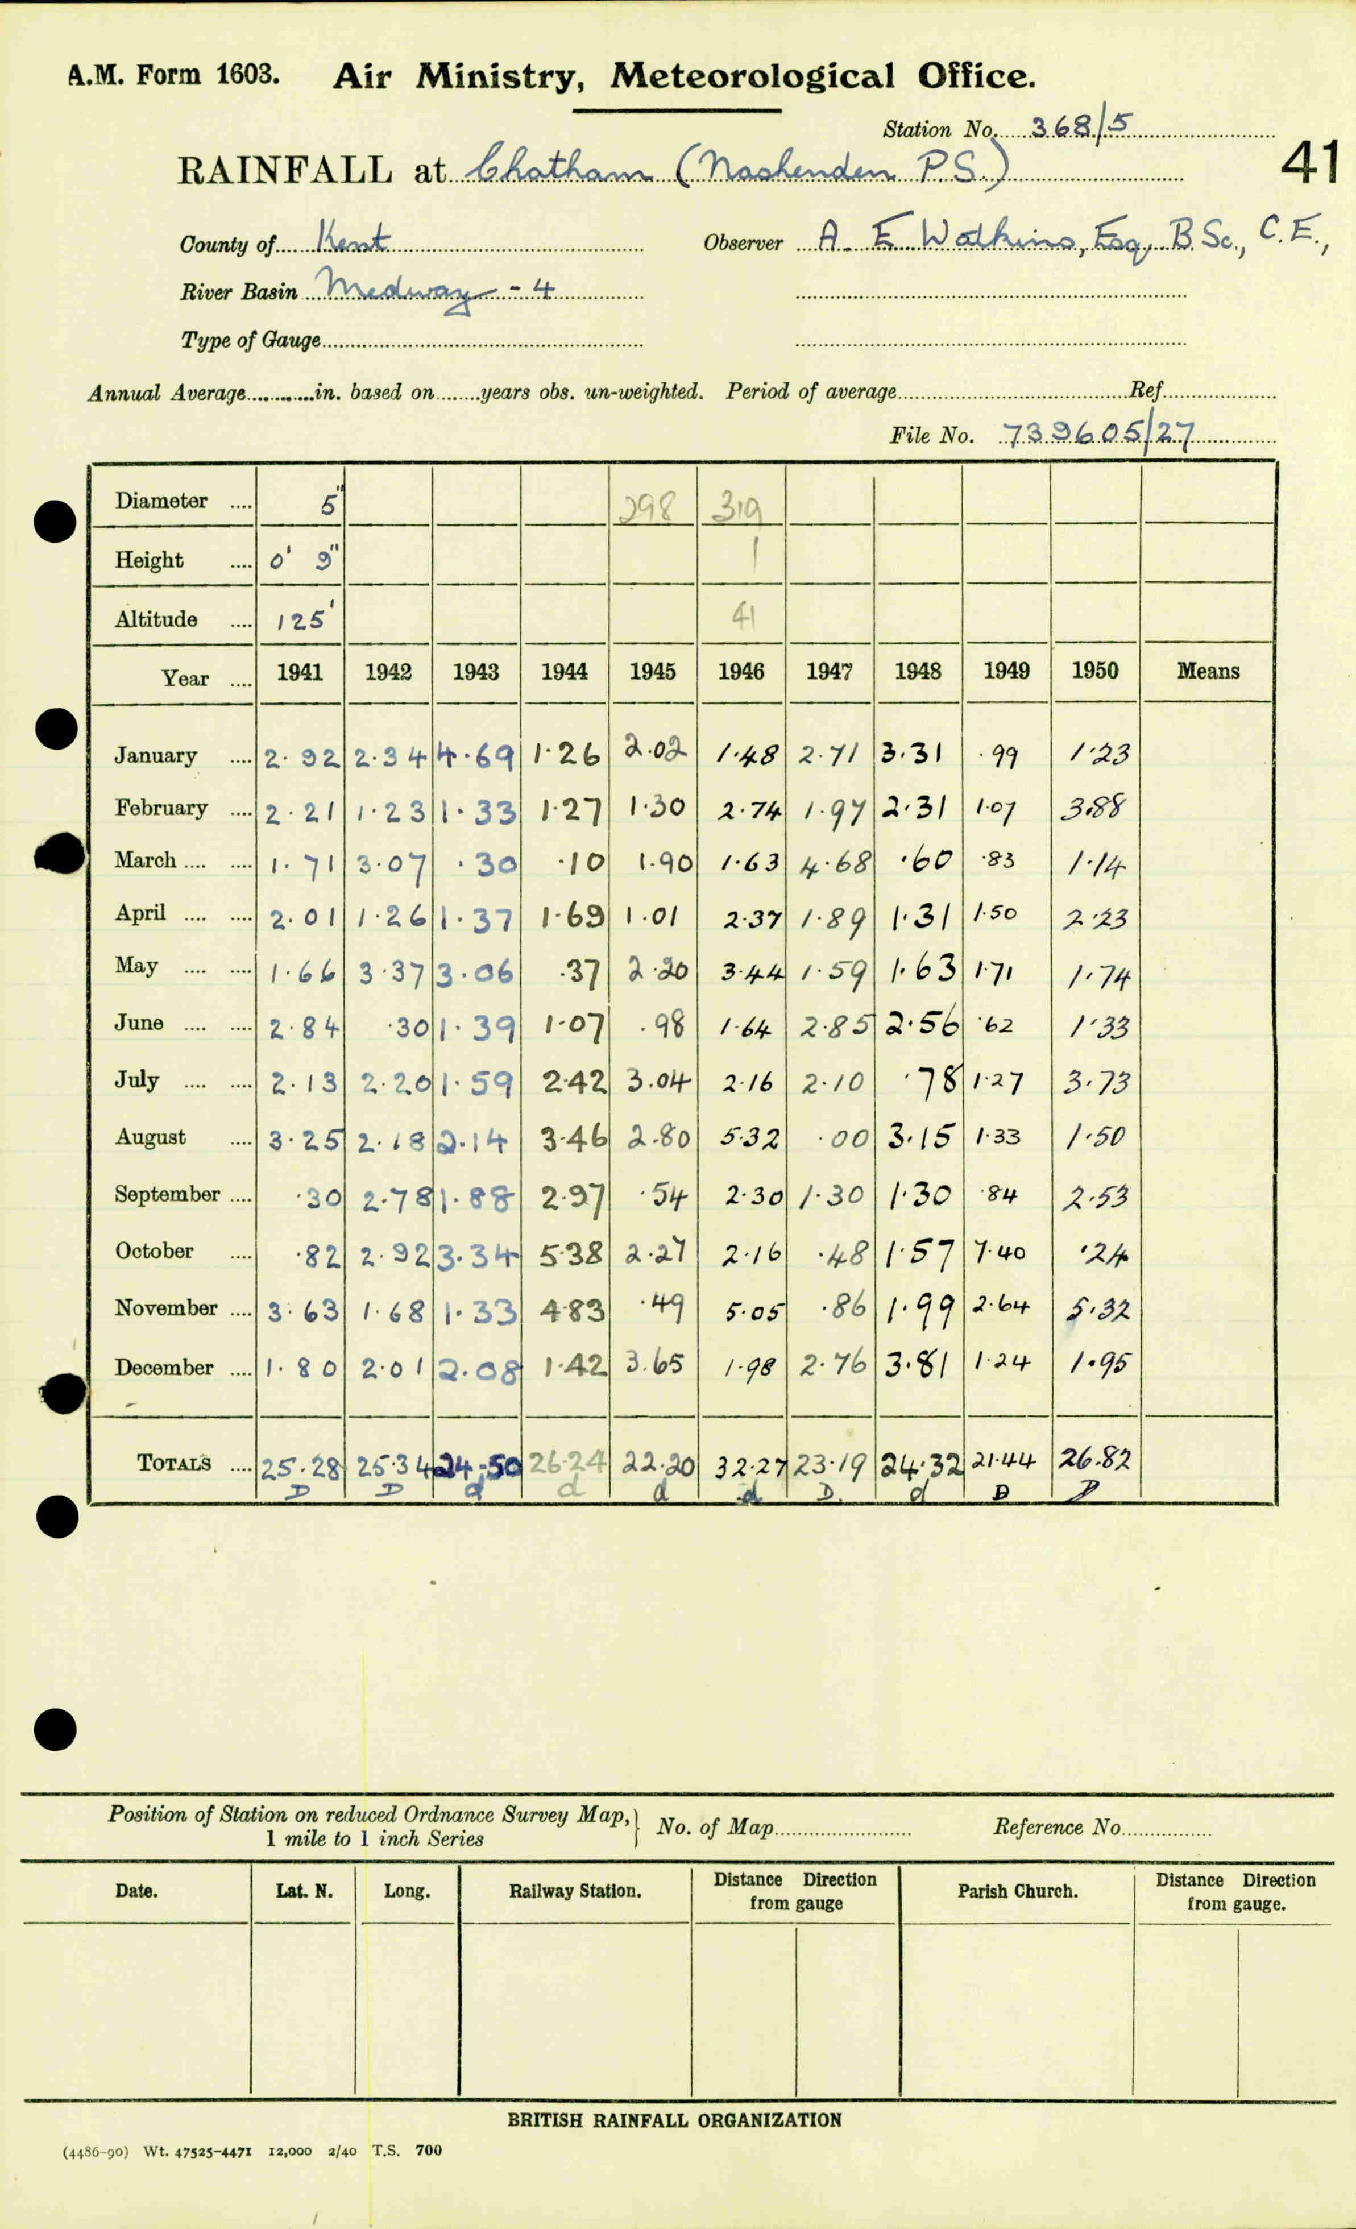 A.M. Form 1603. Air Ministry, Meteorological Office.
Station No. 368/5
41
RAINFALL at Chatham (Nashenden P.S.)
County of Kent Observer A. E. Watkins, Esq, B.Sc., C.E.,
River Basin Medway - 4
Type of Gauge
Annual Average in. based on years obs. un-weighted. Period of average Ref
File No. 739605/27
Diameter 5" 298 319
Height 0' 9" 1
Altitude 125' 41
Year 1941 1942 1943 1944 1945 1946 1947 1948 1949 1950 Means
January 2.92 2.34 4.69 1.26 2.02 1.48 2.71 3.31 .99 1.23
February 2.21 1.23 1.33 1.27 1.30 2.74 1.97 2.31 1.07 3.88
March 1.71 3.07 .30 .10 1.90 1.63 4.68 .60 .83 1.14
April 2.01 1.26 1.37 1.69 1.01 2.37 1.89 1.31 1.50 2.23
May 1.66 3.37 3.06 .37 2.20 3.44 1.59 1.63 1.71 1.74
June 2.84 .30 1.39 1.07 .98 1.64 2.85 2.56 .62 1.33
July 2.13 2.20 1.59 2.42 3.04 2.16 2.10 .78 1.27 3.73
August 3.25 2.18 2.14 3.46 2.80 5.32 .00 3.15 1.33 1.50
September .30 2.78 1.88 2.97 .54 2.30 1.30 1.30 .84 2.53
October .82 2.92 3.34 5.38 2.27 2.16 .48 1.57 7.40 .24
November 3.63 1.68 1.33 4.83 .49 5.05 .86 1.99 2.64 5.32
December 1.80 2.01 2.08 1.42 3.65 1.98 2.76 3.81 1.24 1.95
TOTALS 25.28 25.34 24.50 26.24 22.20 32.27 23.19 24.32 21.44 26.82
D D d d d d D. d D D
Position of Station on reduced Ordnance Survey Map, No. of Map Reference No
1 mile to 1 inch Series
Date. Lat. N. Long. Railway Station. Distance Direction from gauge Parish Church. Distance Direction from gauge.
BRITISH RAINFALL ORGANIZATION
(4486-90) Wt. 47525-4471 12,000 2/40 T.S. 700